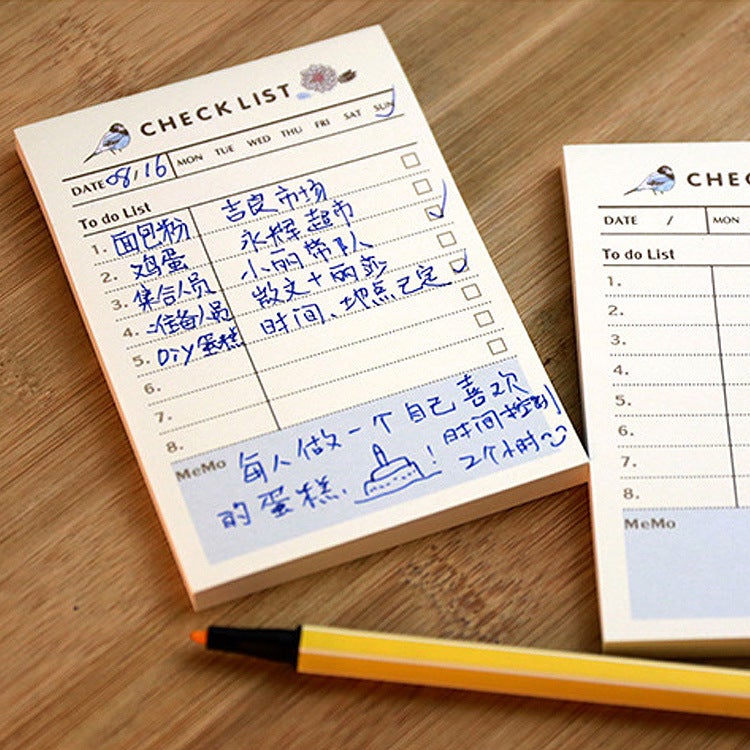 CHECKLIST
DATE 08/16 MON TUE WED THU FRI SAT SUN
To do List
1. 面包粉 吉良市场
2. 鸡蛋 永辉超市
3. 集合人员 小丽带队
4. 准备人员 散文+丽莎
5. DIY蛋糕 时间、地点已定
6.
7.
8.
MeMo
每人做一个自己喜欢
的蛋糕.
!
时间控制
2个小时
CHEC
DATE / MON
To do List
1.
2.
3.
4.
5.
6.
7.
8.
MeMo